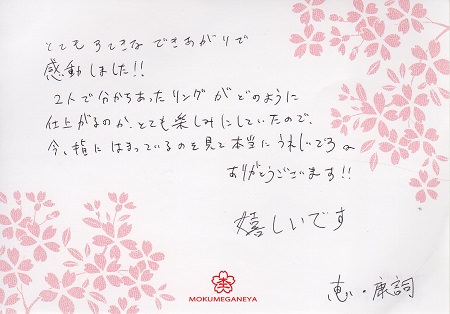 とてもすてきなできあがりで
感動しました!!
2人で分かちあったリングがどのように
仕上がるのか、とても楽しみにしていたので、
今、指にはまっているのを見て本当にうれしいです。
ありがとうございます!!
嬉しいです
恵・康詞
MOKUMEGANEYA